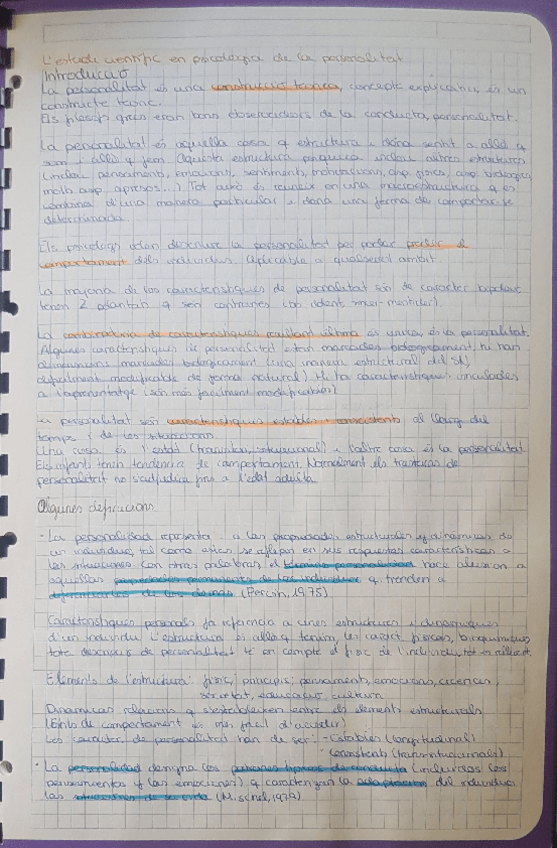 L'estudi científic en psicologia de la personalitat
Introducció
La personalitat és una construcció teòrica, concepte explicatiu, és un
constructe teòric.
Els filòsofs grecs eran bons observadors de la conducta, personalitat.
La personalitat és aquella cosa q estructura i dóna sentit a allò q
som i allò q fem. Aquesta estructura psíquica inclou altres estructures
(inclou pensaments, emocions, sentiments, motivacions, asp. físics, asp. biològics
molts asp. apresos...) Tot això és reuneix en una macroestructura q es
combina d'una manera particular i dona una forma de comportar-se
determinada.
Els psicòlegs volen descriure la personalitat per poder predir el
comportament dels individus. Aplicable a qualsevol àmbit.
La majoria de les característiques de personalitat són de caràcter bipolar,
tenen 2 q són contraries
La combinatoria de característiques resultant última és única, és la personalitat.
Algunes característiques de personalitat estan marcades biologicament, hi han
dimensions marcades biològicament (una manera estructural del SN,
difícilment modificable de forma natural) Hi ha característiques vinculades
a l'aprenentatge (són més facilment modificables)
La personalitat són característiques estables i consistents al llarg del
temps i de les situacions.
Una cosa és l'estat (transitori, situacional) i l'altre cosa és la personalitat.
Els infants tenen tendència de comportament. Normalment els trastorns de
personalitat no s'adjudica fins a l'edat adulta
Algunes definicions
· La personalidad representa a las propiedades estructurales y dinámicas de
un individuo, tal como estas se reflejan en sus respuestas características a
las situaciones. Con otras palabras el término personalidad hace alusión a
aquellas propiedades permanentes de los individuos q tienden a
diferenciarlos de los demás (Pervin, 1975)
Característiques personals fa referència a unes estructures i dinàmiques
d'un individu. L'estructura és allò q tenim, les caract. físiques, bioquímiques
tota descripció de personalitat té en compte el físic de l'individu,
Elements de l'estructura: físic, principis, pensaments, emocions, creences,
societat, educació, cultura
Dinàmicas relacions q s'estableixen entre els elements estructurals
de comportament és més fàcil d'accedir)
Les caràcter. de personalitat han de ser: - Estables (longitudinal)
- Consistents (transituacionals)
· La personalidad designa los patrones típicos de conducta (incluidos los
pensamientos y las emociones) q caracterizan la adaptación del individuo
a las situaciones de su vida (Mischel, 1979)